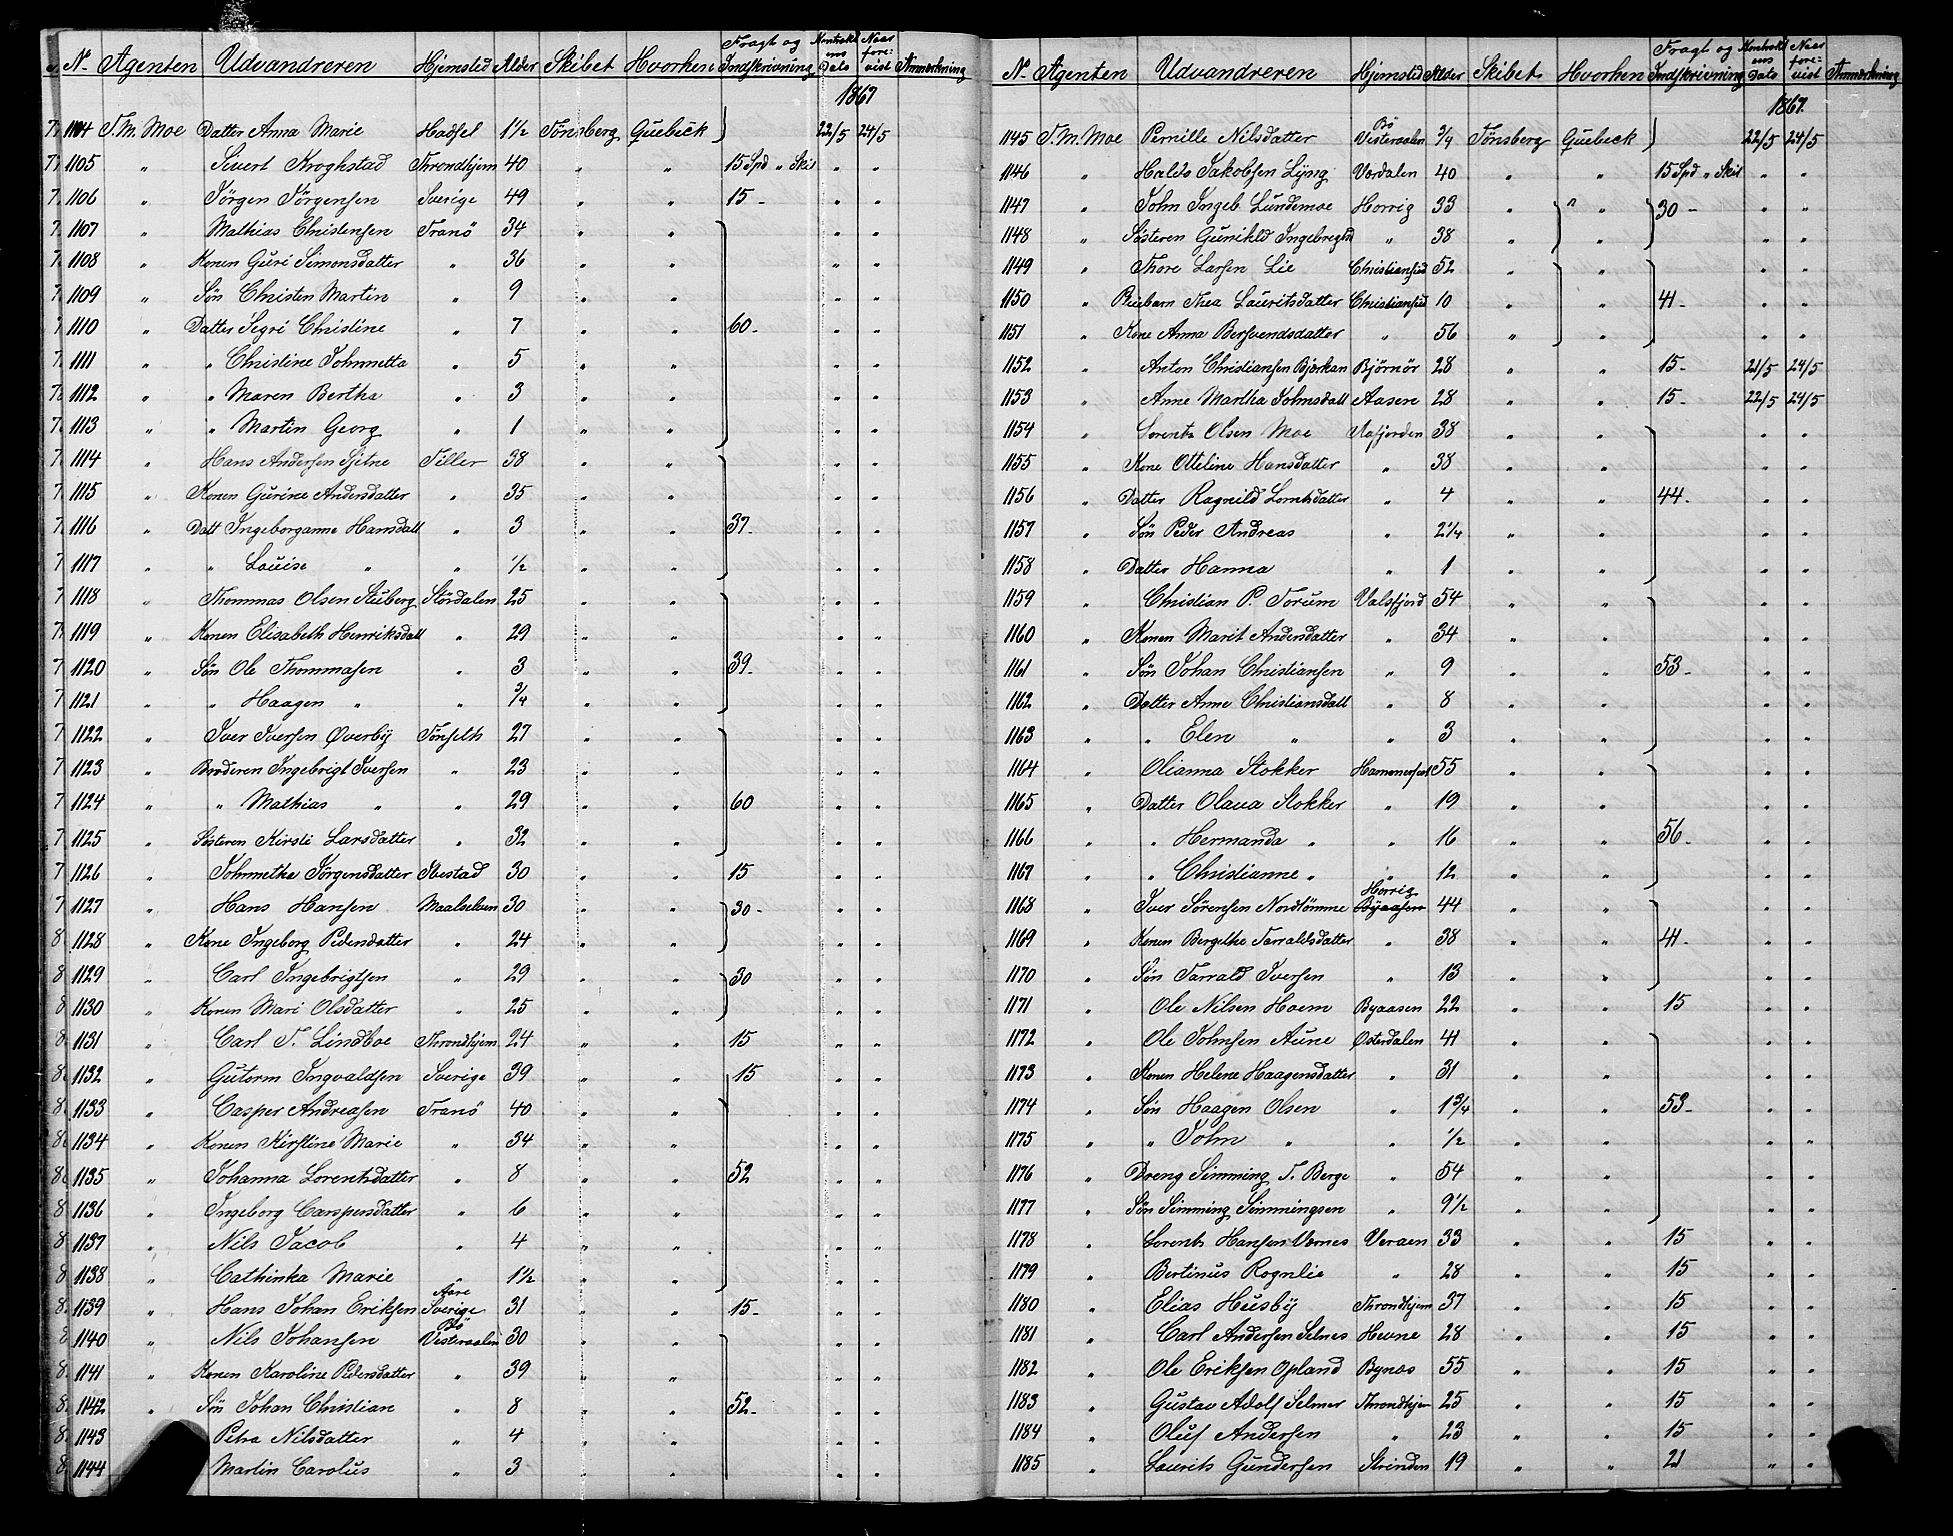 N. Agenten Udvandreren Hjemsted Alder Skibet Hvorhen Fragt og Indskrivning Kontraktens Dato Naar forevist Anmærkning
1867
1104 T. M. Moe Datter Anna Marie Hadsel 1½ Tönsberg Quebeck 22/5 24/5
1105 " Sivert Kroghstad Throndhjem 40 " " 15 Spd " Skil " "
1106 " Jörgen Jörgensen Sverige 49 " " 15 - " "
1107 " Mathias Christensen Tranö 34 " " " "
1108 " Konen Guri Simonsdatter " 36 " " " "
1109 " Sön Christen Martin " 9 " " " "
1110 " Datter Segri Christine " 7 " " 60 - " "
1111 " " Christine Johnnetta " 5 " " " "
1112 " " Maren Bertha " 3 " " " "
1113 " " Martin Georg " 1 " " " "
1114 " Hans Andersen Sjetne Tiller 38 " " " "
1115 " Konen Gurine Andersdatter " 35 " " " "
1116 " Datt Ingeborganne Hansdatt " 3 " " 37 - " "
1117 " " Louise " " ½ " " " "
1118 " Thommas Olsen Stuberg Stördalen 25 " " " "
1119 " Konen Elisabeth Henriksdatt " 29 " " " "
1120 " Sön Ole Thommasen " 3 " " 39 - " "
1121 " " Haagen " " ¾ " " " "
1122 " Iver Iversen Øverby Tönseth 27 " " " "
1123 " Broderen Ingebrigt Iversen " 23 " " " "
1124 " " Mathias " " 29 " " 60 " "
1125 " Sösteren Kirsti Larsdatter " 32 " " " "
1126 " Johnnetha Jörgensdatter Ibestad 30 " " 15 " "
1127 " Hans Hansen Maalselven 30 " " 30 - " "
1128 " Kone Ingeborg Pedersdatter " 24 " " " "
1129 " Carl Ingebrigtsen " 29 " " 30 " "
1130 " Konen Mari Olsdatter " 25 " " " "
1131 " Carl T. Lindboe Throndhjem 24 " " 15 " "
1132 " Gutorm Ingvaldsen Sverige 39 " " 15 " "
1133 " Casper Andreasen Tranö 40 " " " "
1134 " Konen Kirstine Marie " 34 " " " "
1135 " Johanna Lorentsdatter " 8 " " 52 " "
1136 " Ingeborg Caspersdatter " 6 " " " "
1137 " Nils Jacob " 4 " " " "
1138 " Cathinka Marie " 1½ " " " "
1139 " Hans Johan Eriksen Aare Sverige 31 " " 15 - " "
1140 " Nils Johansen Bö Vesteraalen 30 " " " "
1141 " Konen Karoline Pedersdatter " 39 " " " "
1142 " Sön Johan Christian " 8 " " 52 - " "
1143 Petra Nilsdatter " 4 " " " "
1144 Martin Carolus " 3 " " " "
N. Agenten Udvandreren Hjemsted Alder Skibet Hvorhen Fragt og Indskrivning Kontraktens Dato Naar forevist Anmærkning
1867.
1145 T. M. Moe Pernille Nilsdatter Bö Vesteraalen ¾ Tönsberg Quebeck 22/5 24/5
1146 " Haldo Jakobsen Lyng Værdalen 40 " " 15 Spd " Skil " "
1147 " John Ingeb. Lundemoe Horrig 33 " " " 30 - " "
1148 " Sösteren Gunhild " 38 " " " "
1149 " Thore Larsen Lie Christiansund 52 " " " "
1150 " Pleiebarn Thea Lauritsdatter Christiansund 10 " 41 - " "
1151 " Kone Anna Bersvendsdatter " 56 " " " "
1152 " Anton Christiansen Bjørkan Björnör 28 " " 15 - 21/5 24/5
1153 " Anne Martha Johnsdatt Aasen 28 " " 15 - 22/5 24/5
1154 " Lorents Olsen Moe Aafjorden 38 " " " "
1155 " Kone Otteline Hansdatter " 38 " " " "
1156 " Datter Ragnild Lorntsdatter " 4 " " 44 - " "
1157 " Sön Peder Andreas " 2¼ " " " "
1158 " Datter Hanna " 1 " " " "
1159 " Christian P. Forum Valsfjord 54 " " " "
1160 " Konen Marit Andersdatter " 34 " " " "
1161 " Sön Johan Christiansen " 9 " " 53 - " "
1162 " Datter Anne Christiansdatt " 8 " " " "
1163 " " Elen " " 3 " " " "
1164 " Olianna Stokker Hammerfest 55 " " " "
1165 " Datter Olava Stokker " 19 " " " "
1166 " " Hermanda " " 16 " " 56 - " "
1167 " " Christianne " " 12 " " " "
1168 " Iver Sörensen Nordtömme Horrig Byaasen 44 " " " "
1169 " Konen Bergithe Tarraldsdatter " 38 " " 41 - " "
1170 " Sön Tarrald Iversen " 13 " " " "
1171 " Ole Nilsen Hoem Byaasen 22 " " 15 " "
1172 " Ole Johnsen Aune Østerdalen 41 " " " "
1173 " Konen Helene Haagensdatter " 31 " " " "
1174 " Sön Haagen Olsen " 1¾ " " 53 - " "
1175 " " John " " ½ " " " "
1176 " Dreng Simming T. Berge " 54 " " " "
1177 " Sön Simming Simmingsen " 9½ " " " "
1178 " Lorents Hansen Værnes Veraen 33 " " 15 " "
1179 " Bertinus Rognlie " 28 " " 15 " "
1180 " Elias Husby Throndhjem 37 " " 15 " "
1181 " Carl Andersen Selnes Hevne 28 " " 15 " "
1182 " Ole Eriksen Opland Bynæs 55 " " 15 " "
1183 " Gustav Adolf Selmer Throndhjem 25 " " 15 " "
1184 " Oluf Andersen " 23 " " 15 " "
1185 " Laurits Gundersen Strinden 19 " " 21 " "